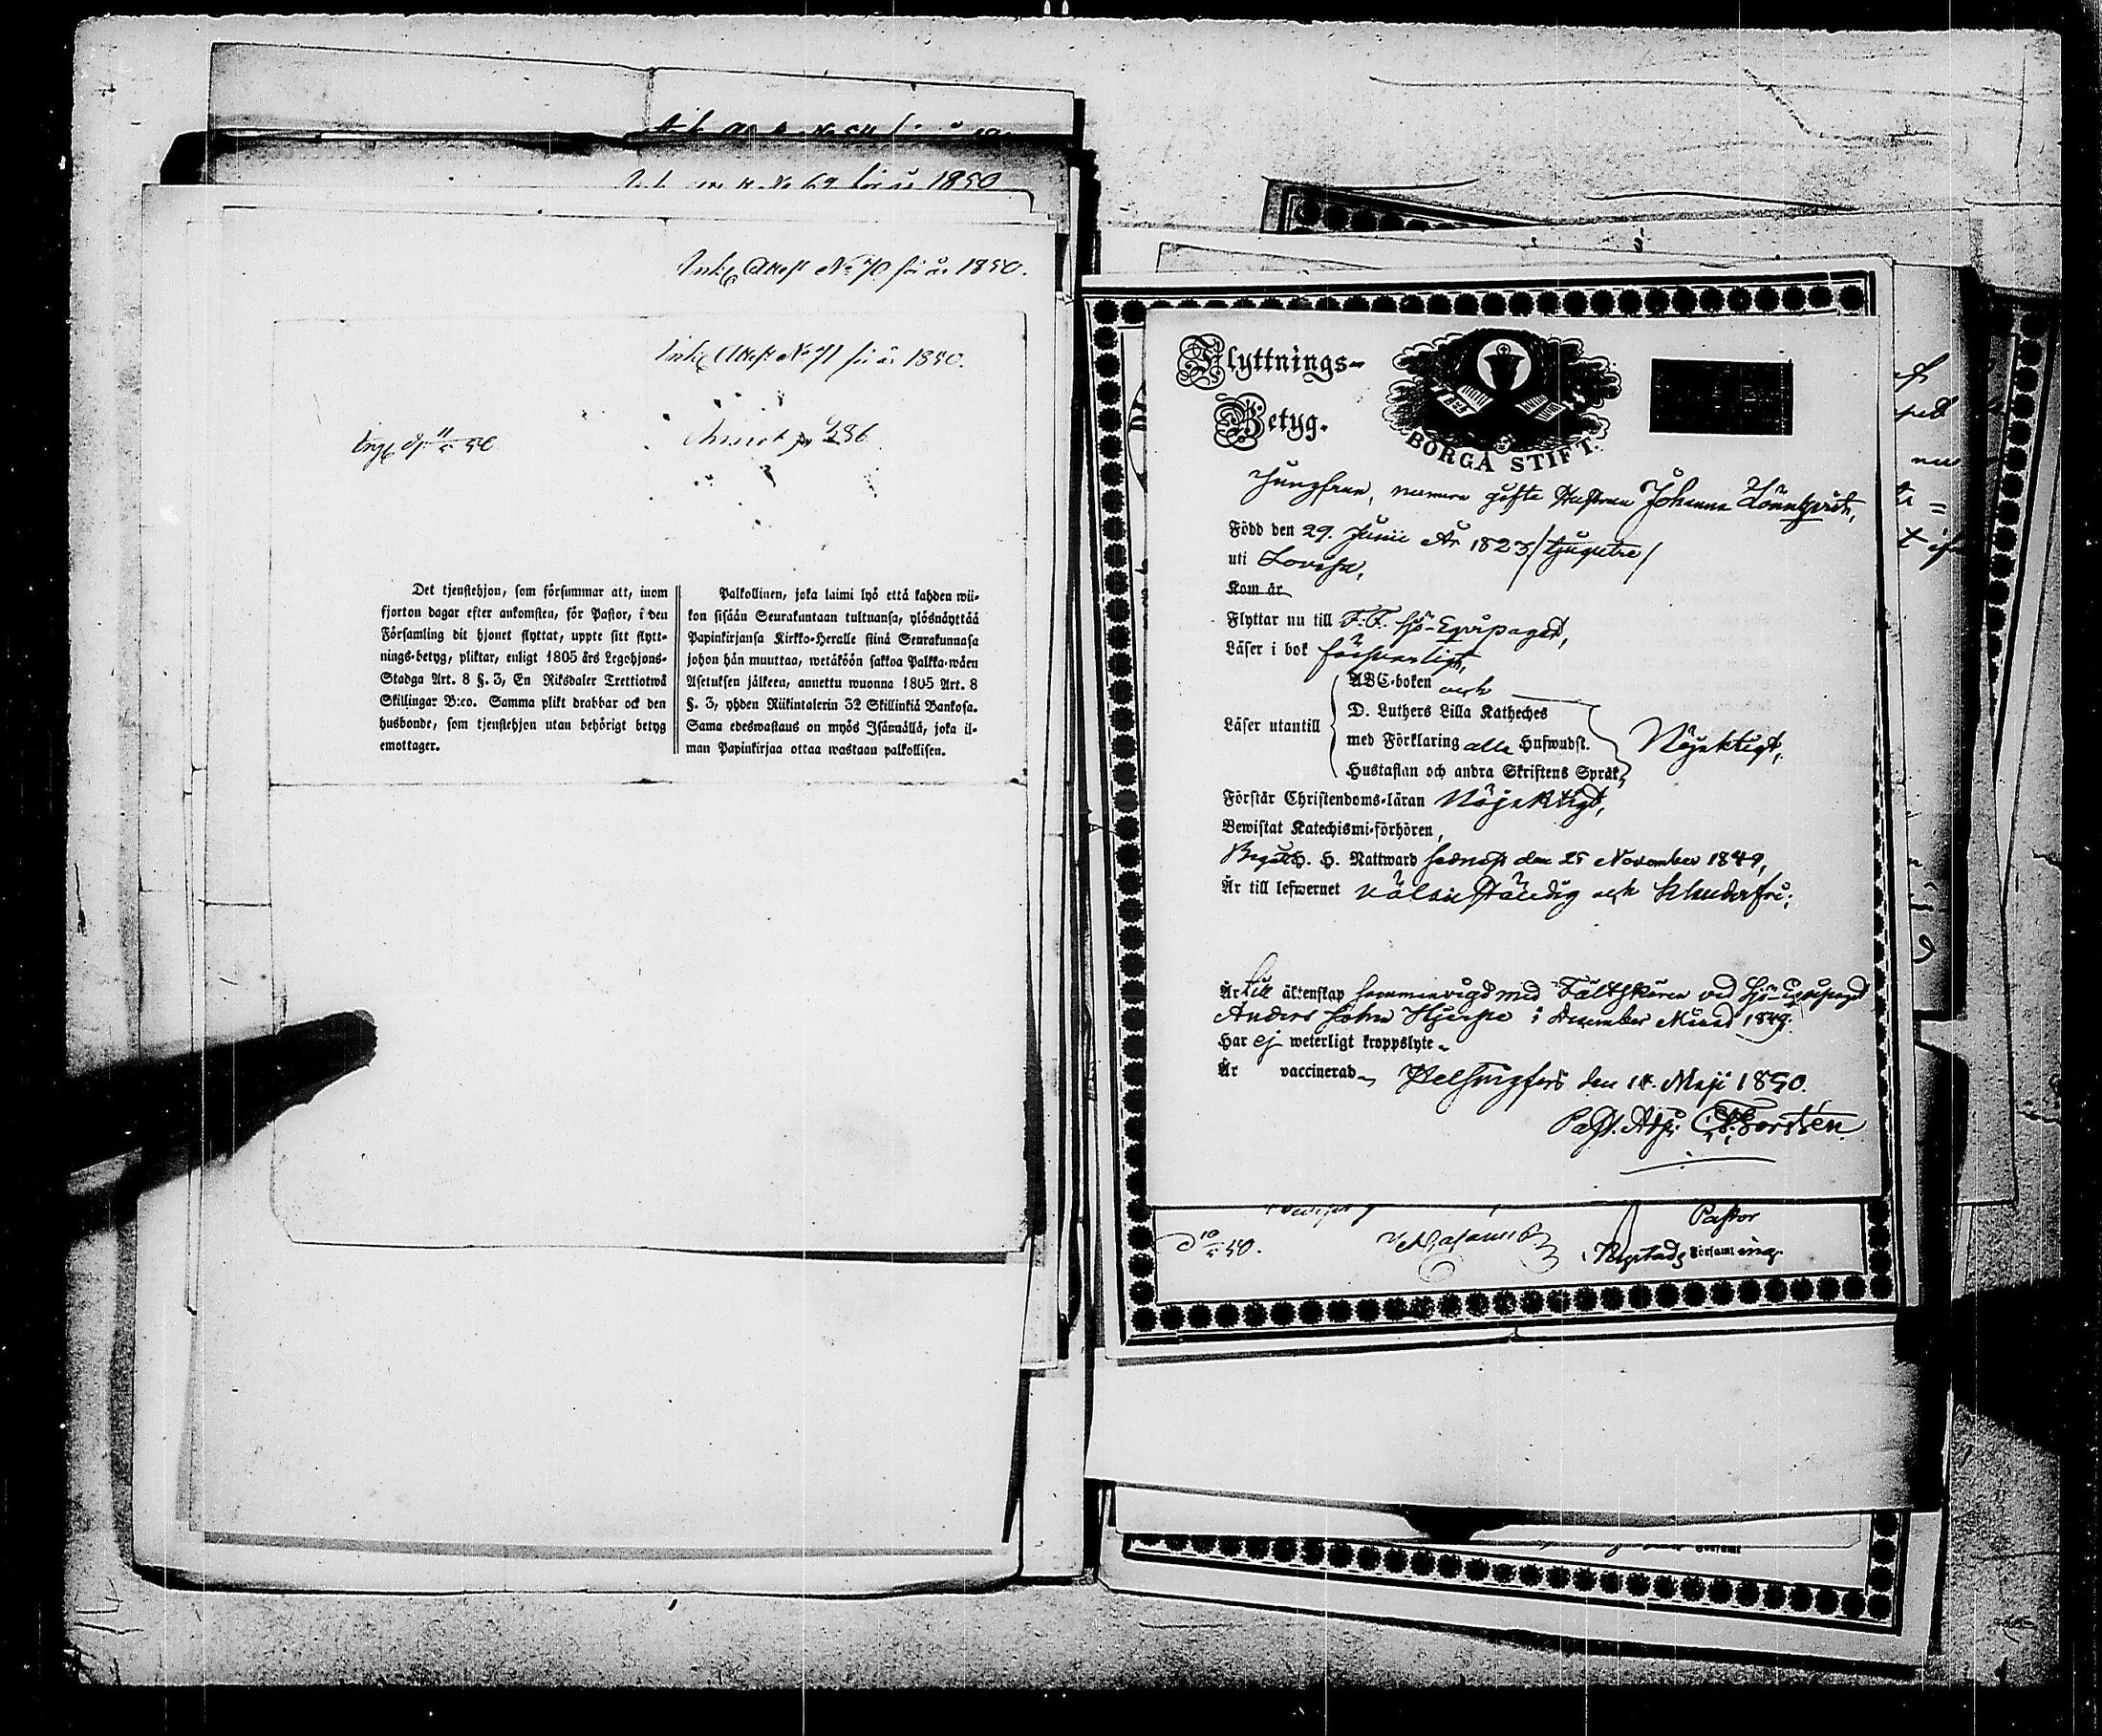 för år 1850
Attest No 70 för år 1850.
Attest No 71 för år 1850.
Det tjenstehjon, som försummar att, inom
fjorton dagar efter ankomsten, för Pastor, i den
Församling dit hjonet flyttat, uppte sitt flytt-
nings-betyg, pliktar, enligt 1805 års Legohjons-
Stadga Art. 8 §. 3, En Riksdaler Trettiotwå
Skillingar B:co. Samma plikt drabbar ock den
husbonde, som tjenstehjon utan behörigt betyg
emottager.
Palkollinen, joka laimi lyö että kahden wii-
kon sisään Seurakuntaan tultuansa, ylösnäyttää
Papinkirjansa Kirkko-Heralle siinä Seurakunnasa
johon hän muuttaa, wetäköön sakkoa Palkka-wäen
Asetuksen jälkeen, annettu wuonna 1805 Art. 8
§. 3, yhden Riikintalerin 32 Skillinkiä Bankosa.
Sama edeswastaus on myös Isännällä, joka il-
man Papinkirjaa ottaa wastaan palkollisen.
Flyttnings-
Betyg.
BORGÅ STIFT.
Jungfrun, numera gifta Hustrun Johanna Lönnqvist,
Född den 29. Junii År 1823 /tjugutre/
uti Lovisa,
Kom år
Flyttar nu till F.F. Sjö-Equipaget,
Läser i bok försvarligt,
ABC-boken och
D. Luthers Lilla Katheches
Läser utantill
med Förklaring alla Hufwudst.
Nöjaktigt,
Hustaflan och andra Skriftens Språk,
Förstår Christendoms-läran Nöjaktigt,
Bewistat Katechismi-förhören,
Begått H. H. Nattward sednast den 25 November 1849,
Är till lefwernet välanständig och klanderfri;
Är till äktenskap sammanvigd med Fältskären vid Sjö-Equipaget
Anders John Hjerpe i December Månad 1849.
Har ej weterligt kroppslyte
Är vaccinerad Helsingfors den 14. Maji 1850.
Past. Adj: Forstén
Pastor
Församling.